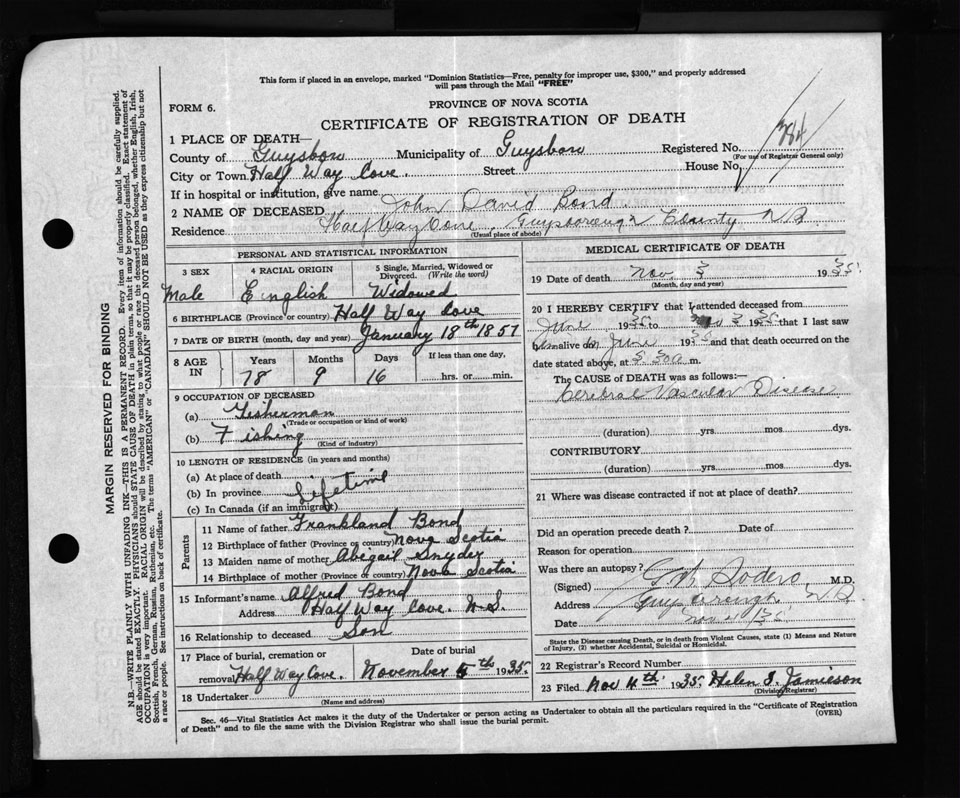 This form if placed in an envelope, marked "Dominion Statistics—Free, penalty for improper use, $300," and properly addressed
will pass through the Mail "FREE"
FORM 6.
PROVINCE OF NOVA SCOTIA
CERTIFICATE OF REGISTRATION OF DEATH
384
1 PLACE OF DEATH—
County of Guysboro Municipality of Guysboro Registered No.
(For use of Registrar General only)
City or Town Half Way Cove. Street House No.
If in hospital or institution, give name
2 NAME OF DECEASED John David Bond
Residence Half Way Cove, Guysborough County NS
(Usual place of abode)
PERSONAL AND STATISTICAL INFORMATION
3 SEX 4 RACIAL ORIGIN 5 Single, Married, Widowed or Divorced. (Write the word)
Male English Widowed
6 BIRTHPLACE (Province or country) Half Way Cove
7 DATE OF BIRTH (month, day and year) January 18th 1857
8 AGE IN Years Months Days If less than one day,
78 9 16 hrs. or min.
9 OCCUPATION OF DECEASED
(a) Fisherman
(Trade or occupation or kind of work)
(b) Fishing
(Kind of industry)
10 LENGTH OF RESIDENCE (in years and months)
(a) At place of death
(b) In province Lifetime
(c) In Canada (if an immigrant)
Parents
11 Name of father Frankland Bond
12 Birthplace of father (Province or country) Nova Scotia
13 Maiden name of mother Abegail Snyder
14 Birthplace of mother (Province or country) Nova Scotia
15 Informant's name Alfred Bond
Address Half Way Cove. N.S.
16 Relationship to deceased Son
17 Place of burial, cremation or removal Half Way Cove. Date of burial November 5th 1935.
18 Undertaker
(Name and address)
MEDICAL CERTIFICATE OF DEATH
19 Date of death Nov. 3 1935
(Month, day and year)
20 I HEREBY CERTIFY that I attended deceased from
June 1935 to 3 1935 that I last saw
him alive on June 1935 and that death occurred on the
date stated above, at m.
The CAUSE OF DEATH was as follows:—
Cerebral Vascular Disease
(duration) yrs. mos. dys.
CONTRIBUTORY
(duration) yrs. mos. dys.
21 Where was disease contracted if not at place of death?
Did an operation precede death? Date of
Reason for operation
Was there an autopsy?
(Signed) Sodero M.D.
Address Guysborough NS
Date Nov 4/35
State the Disease causing Death, or in death from Violent Causes, state (1) Means and Nature
of Injury, (2) whether Accidental, Suicidal or Homicidal.
22 Registrar's Record Number
23 Filed Nov 4th. 1935. Helen S. Jamieson
(Division Registrar)
Sec. 46—Vital Statistics Act makes it the duty of the Undertaker or person acting as Undertaker to obtain all the particulars required in the "Certificate of Registration
of Death" and to file the same with the Division Registrar who shall issue the burial permit.
(OVER)
MARGIN RESERVED FOR BINDING
N.B.—WRITE PLAINLY WITH UNFADING INK—THIS IS A PERMANENT RECORD. Every item of information should be carefully supplied.
AGE should be stated EXACTLY. PHYSICIANS should STATE CAUSE OF DEATH in plain terms, so that it may be properly classified. Exact statement of
OCCUPATION is very important. RACIAL ORIGIN will be described by stating to what people or race the deceased person belonged, whether English, Irish,
Scottish, French, German, Russian, Ruthenian, etc. The terms "AMERICAN" or "CANADIAN" SHOULD NOT BE USED as they express citizenship but not
a race or people. See instructions on back of certificate.